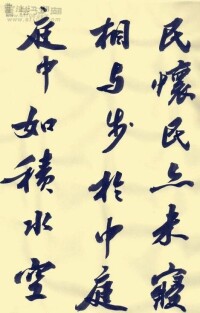 民懷民亦未寢
相与步於中庭
庭中如積水空